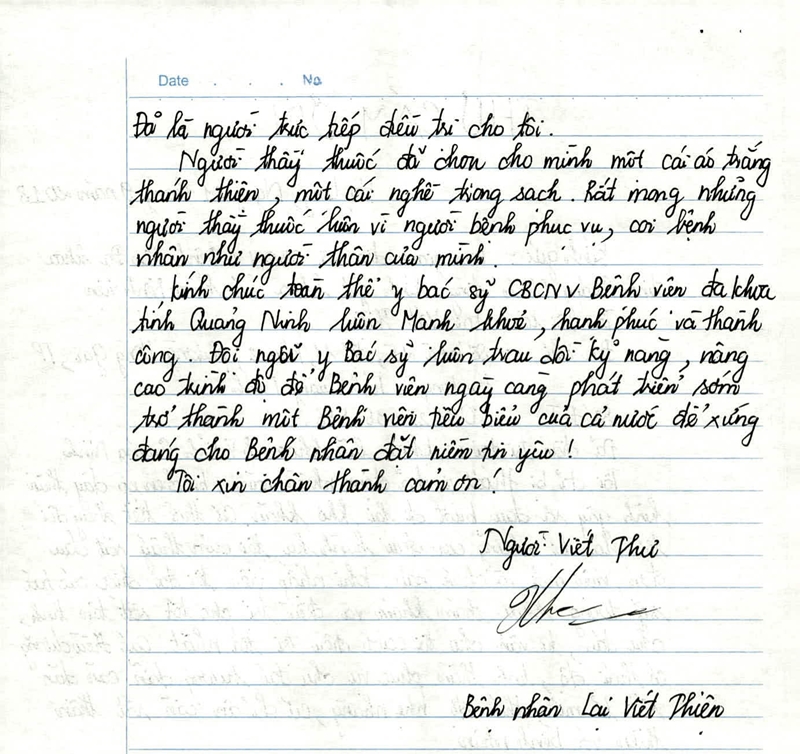 Date . . . No.
Đã là người trực tiếp điều trị cho tôi.
Người thầy thuốc đã chọn cho mình một cái áo trắng
thanh thiện, một cái nghề trong sạch. Rất mong những
người thầy thuốc luôn vì người bệnh phục vụ, coi bệnh
nhân như người thân của mình.
Kính chúc toàn thể y bác sỹ CBCNV Bệnh viện đa khoa
tỉnh Quảng Ninh luôn Mạnh khoẻ, hạnh phúc và thành
công. Đội ngũ y Bác sỹ luôn trau dồi kỹ năng, nâng
cao trình độ để Bệnh viện ngày càng phát triển sớm
trở thành một Bệnh viện tiêu biểu của cả nước để xứng
đáng cho Bệnh nhân đặt niềm tin yêu!
Tôi xin chân thành cảm ơn!
Người Viết Thư
Bệnh nhân Lại Viết Thiện